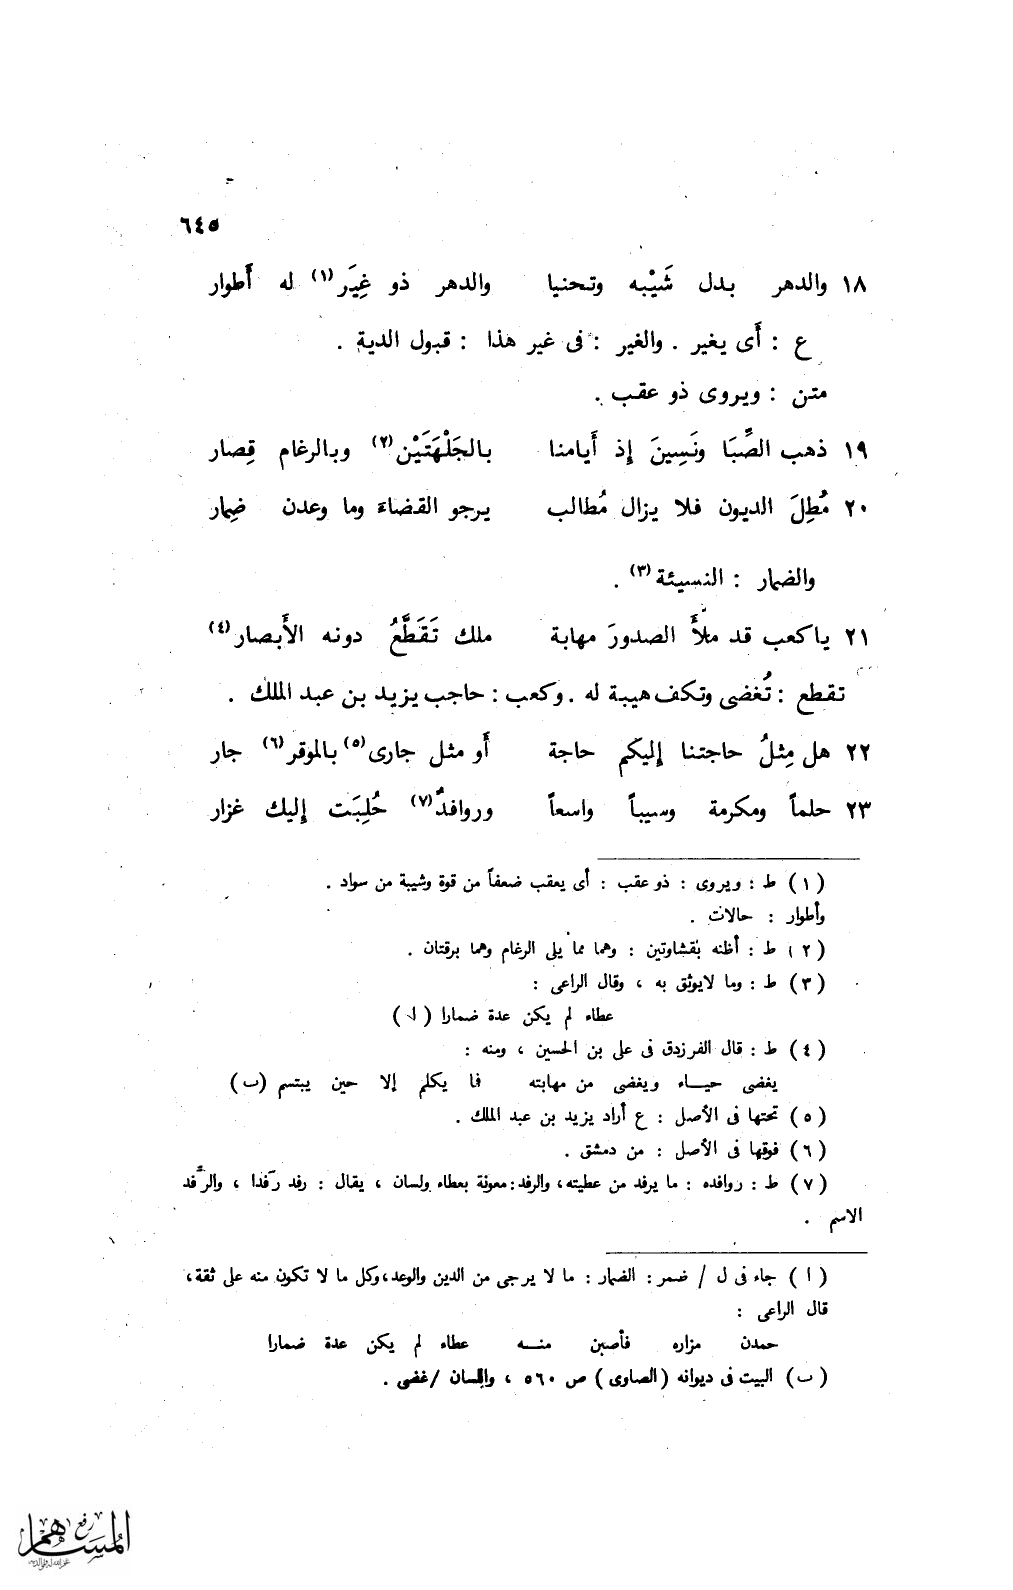 ٦٤٥
١٨ والدهر بدل شَيْبه وتحنيا والدهر ذو غِيَر(١) له أَطوار
ع : أَى يغير . والغير : فى غير هذا : قبول الدية .
متن : ويروى ذو عقب .
١٩ ذهب الصِّبَا ونَسِينَ إِذ أَيامنا بالجَلْهَتَيْن(٢) وبالرغام قِصار
٢٠ مُطِلَ الديون فلا يزال مُطالب يرجو القضاءَ وما وعدن ضِمار
والضمار : النسيئة(٣) .
٢١ ياكعب قد ملأَ الصدورَ مهابة ملك تَقَطَّعُ دونه الأَبصار(٤)
تقطع : تُغضى وتكف هيبة له . وكعب : حاجب يزيد بن عبد الملك .
٢٢ هل مِثلُ حاجتنا إليكم حاجة أَو مثل جارى(٥) بالموقر(٦) جار
٢٣ حلماً ومكرمة وسيباً واسعاً وروافدٌ(٧) حُلِبَت إليك غزار
(١) ط : ويروى : ذو عقب : أى يعقب ضعفاً من قوة وشيبة من سواد .
وأطوار : حالات .
(٢) ط : أظنه بقشاوتين : وهما مما يلى الرغام وهما برقتان .
(٣) ط : وما لايوثق به ، وقال الراعى :
عطاء لم يكن عدة ضمارا (ا)
(٤) ط : قال الفرزدق فى على بن الحسين ، ومنه :
يغضى حيـاء ويغضى من مهابته فما يكلم إلا حين يبتسم (ب)
(٥) تحتها فى الأصل : ع أراد يزيد بن عبد الملك .
(٦) فوقها فى الأصل : من دمشق .
(٧) ط : روافده : ما يرفد من عطيته، والرفد : معونة بعطاء ولسان ، يقال : رفد رَفدا ، والرِّفد
الاسم .
(ا) جاء فى ل / ضمر : الضمار : ما لا يرجى من الدين والوعد، وكل ما لا تكون منه على ثقة،
قال الراعى :
حمدن مزاره فأصبن منـه عطاء لم يكن عدة ضمارا
(ب) البيت فى ديوانه (الصاوى) ص ٥٦٠ ، واللسان / غضى .
رفع
المساهم